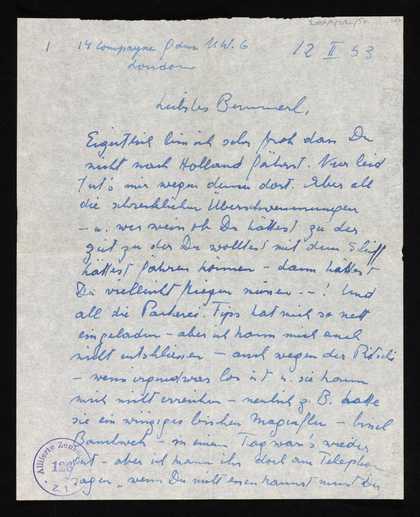 1 14 Compayne Gdns N.W.6
London
12 II 53
Liebstes Bemmerl,
Eigentlich bin ich sehr froh dass Du
nicht nach Holland fährst. Nur leid
tut's mir wegen denen dort. Aber all
die schrecklichen Überschwemmungen
– u. wer weiss ob Du hättest zu der
Zeit zu der Du wolltest mit dem Schiff
hättest fahren können – dann hättest
Du vielleicht fliegen müssen --! Und
all die Packerei. Tips hat mich so nett
eingeladen – aber ich kann mich auch
nicht entschliessen – auch wegen der
– wenn irgendwas los ist u. sie kann
mich nicht erreichen – neulich z. B. hatte
sie ein winziges bischen – bissel
Bauchweh – in einem Tag war's wieder
gut – aber ich kann ihr doch am Telephon
sagen, "wenn Du nicht essen kannst musst Du
Alliierte Zensur
128